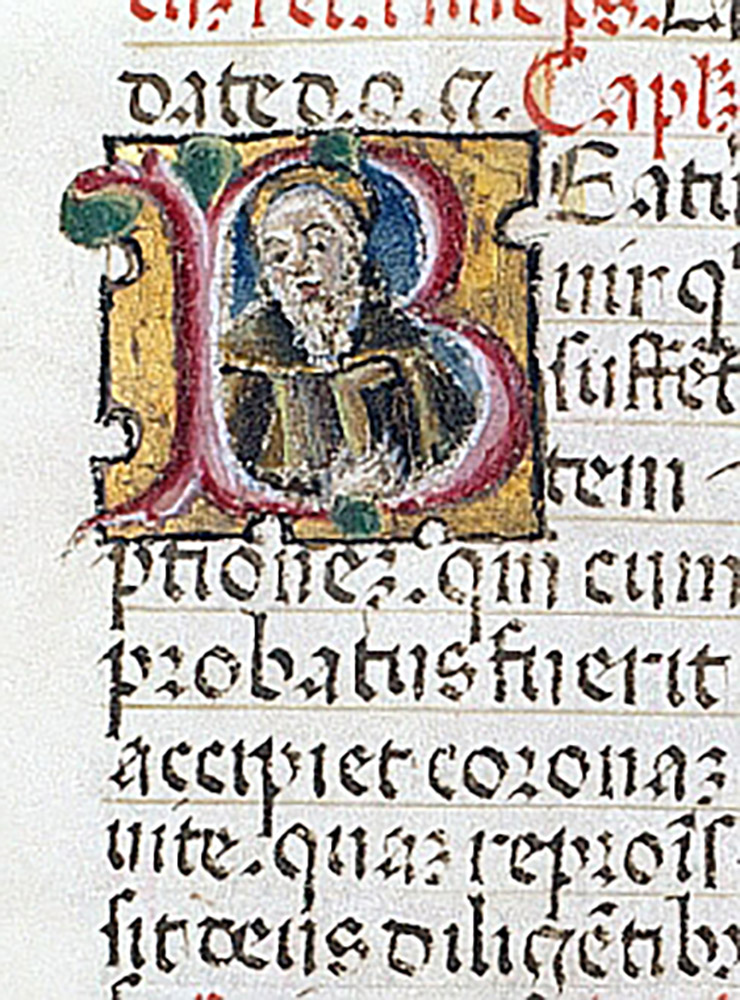 date d. o. n. Capl
Beatu
uir q
suffert
tem
ptionez. qui cum
probatus fuerit
accipiet coronaz
uite. quaz reprõis
sit deus diligẽtib